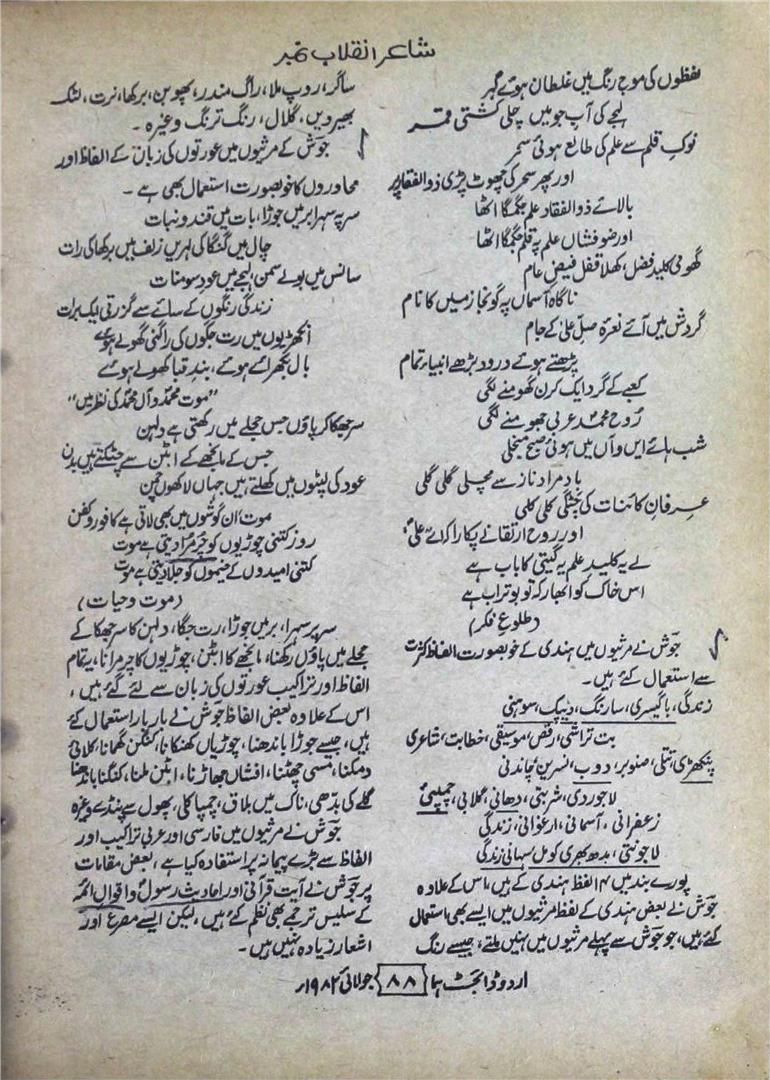 شاعر انقلاب نمبر
لفظوں کی موج رنگ میں غلطاں ہوئے گہر
لہجے کی آب جو میں چلی کشتیِ قمر
نوکِ قلم سے علم کی طالع ہوئی سحر
اور پھر سحر کی چھوٹ پڑی ذوالفقار پر
بالائے ذوالفقار علم جگمگا اٹھا
اور ضوفشاں علم پہ قلم جگمگا اٹھا
گھومی کلیدِ فضل، کھلا قفلِ فیضِ عام
ناگاہ آسماں پہ گونجا زمیں کا نام
گردش میں آئے نعرۂ صلِّ علیٰ کے جام
پڑھتے ہوئے درود بڑھے انبیاء تمام
کعبے کے گرد ایک کرن گھومنے لگی
رُوحِ محمدؐ عربی جھومنے لگی
شب ہائے این و آں میں ہوئی صبح منجلی
بادِ مراد ناز سے مچلی گلی گلی
عرفانِ کائنات کی چٹکی کلی کلی
اور روحِ ارتقا نے پکارا کہ اے علیؑ
لے یہ کلیدِ علم یہ گیتی کا باب ہے
اس خاک کو ابھار کہ تو بوتراب ہے
(طلوعِ فکر)
جوشؔ نے مرثیوں میں ہندی کے خوبصورت الفاظ کثرت
سے استعمال کئے ہیں۔
زندگی، باگیسری، سارنگ، دیپک، سوہنی
بت تراشی، رقص، موسیقی، خطابت، شاعری
پنکھڑی، تتلی، صنوبر، دوب، نسرین، چاندنی
لاجوردی، شربتی، دھانی، گلابی، چمپئی
زعفرانی، آسمانی، ارغوانی، زندگی
لاجونتی، بدھ بھری کومل سہانی زندگی
پورے بند میں ۱۴ لفظ ہندی کے ہیں، اس کے علاوہ
جوشؔ نے بعض ہندی کے لفظ مرثیوں میں ایسے بھی استعمال
کئے ہیں، جو جوشؔ سے پہلے مرثیوں میں نہیں ملتے، جیسے رنگ
ساگر، روپ ملا، راگ مندر، پھوبن، برکھا، نرت، لٹک
بھیرویں، گلال، رنگ ترنگ وغیرہ۔
جوشؔ کے مرثیوں میں عورتوں کی زبان کے الفاظ اور
محاوروں کا خوبصورت استعمال بھی ہے۔
سر پہ سہرا بر میں جوڑا، بات میں قند و نبات
چال میں گنگا کی لہریں زلف میں برکھا کی رات
سانس میں بوئے سمن، لہجے میں عود سومنات
زندگی رنگوں کے سائے سے گزرتی ایک برات
انکھڑیوں میں رت جگوں کی راگنی گھولے ہوئے
بال بکھرائے ہوئے، بندِ قبا کھولے ہوئے
"موت محمدؐ و آلِ محمدؐ کی نظر میں"
سر جھکا کر پاؤں جس حجلے میں رکھتی ہے دلہن
جس کے مانجھے کے ابٹن سے چٹکتے ہیں بدن
عود کی لپٹوں میں کھلتے ہیں جہاں لاکھوں چمن
موت اُن گوشوں میں بھی لاتی ہے کافور و کفن
روز کتنی چوڑیوں کو چُرمُرا دیتی ہے موت
کتنی امیدوں کے خیموں کو جلا دیتی ہے موت
(موت و حیات)
سر پر سہرا، بر میں جوڑا، رت جگا، دلہن کا سر جھکا کے
حجلے میں پاؤں رکھنا، مانجھے کا ابٹن، چوڑیوں کا چرمرانا، یہ تمام
الفاظ اور تراکیب عورتوں کی زبان سے لئے گئے ہیں،
اس کے علاوہ بعض الفاظ جوشؔ نے بار بار استعمال کئے
ہیں، جیسے جوڑا باندھنا، چوڑیاں کھنکانا، کنگن گھمانا، کلائی
دمکنا، مسی چھٹنا، افشاں جھاڑنا، ابٹن ملنا، کنگنا باندھنا
گلے کی بدّھی، ناک میں بلاق، چمپاکلی، پھول سے پنڈے وغیرہ
جوشؔ نے مرثیوں میں فارسی اور عربی تراکیب اور
الفاظ سے بڑے پیمانہ پر استفادہ کیا ہے، بعض مقامات
پر جوشؔ نے آیت قرآنی اور احادیث رسولؐ و اقوال ائمہؑ
کے سلیس ترجمے بھی نظم کئے ہیں، لیکن ایسے مصرع اور
اشعار زیادہ نہیں ہیں۔
اردو ڈائجسٹ ہما ۸۸ جولائی ۱۹۸۲ء